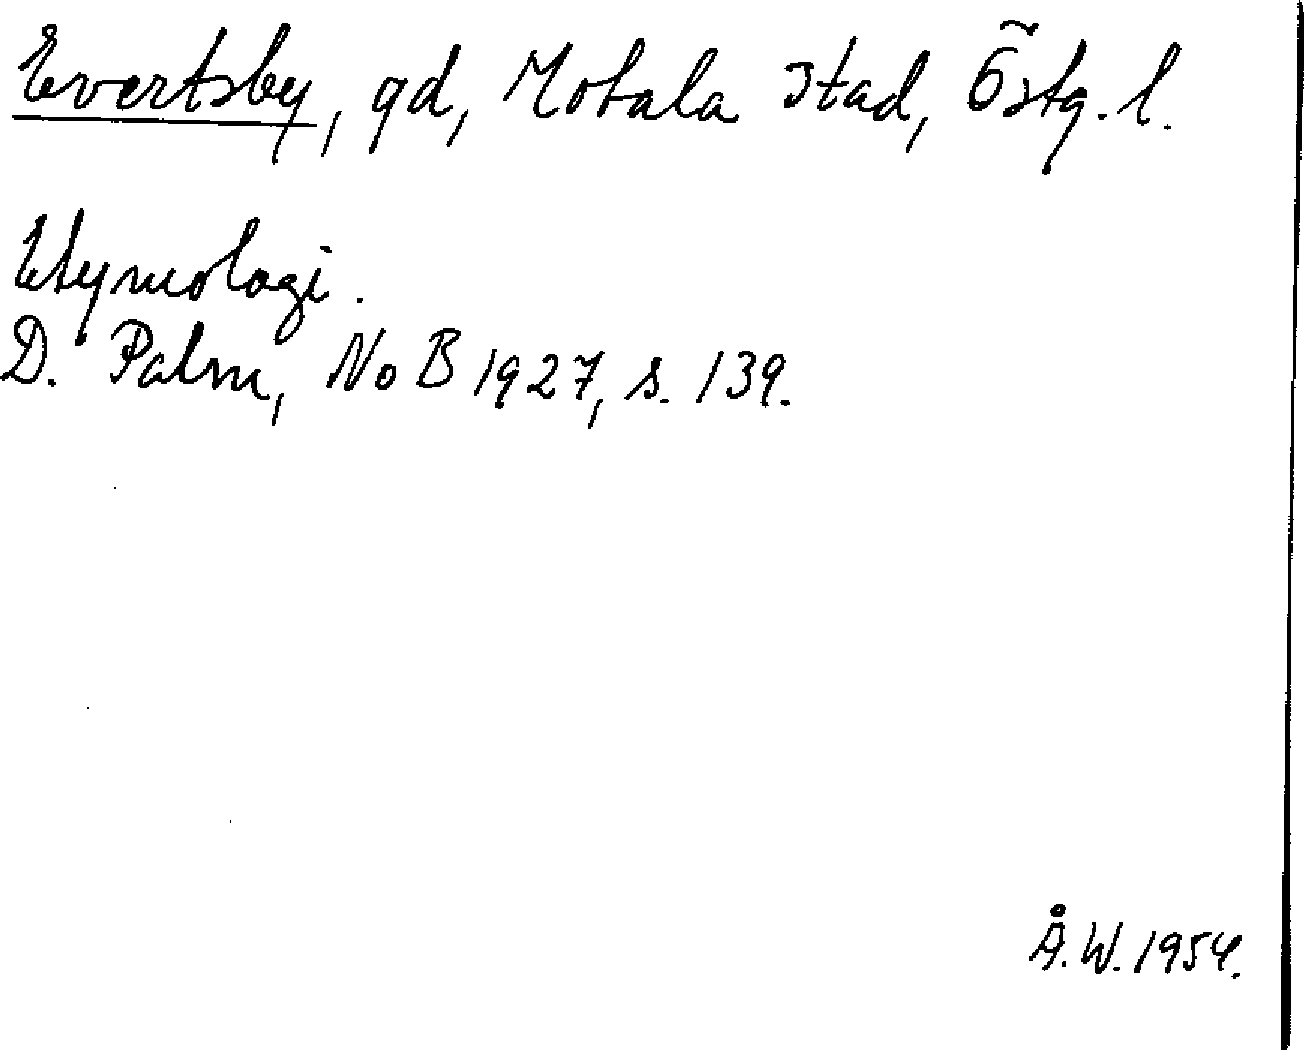 Evertsby, gd, Motala stad, Östg. l.
Etymologi.
D. Palm, NoB 1927, s. 139.
Å.W. 1954.